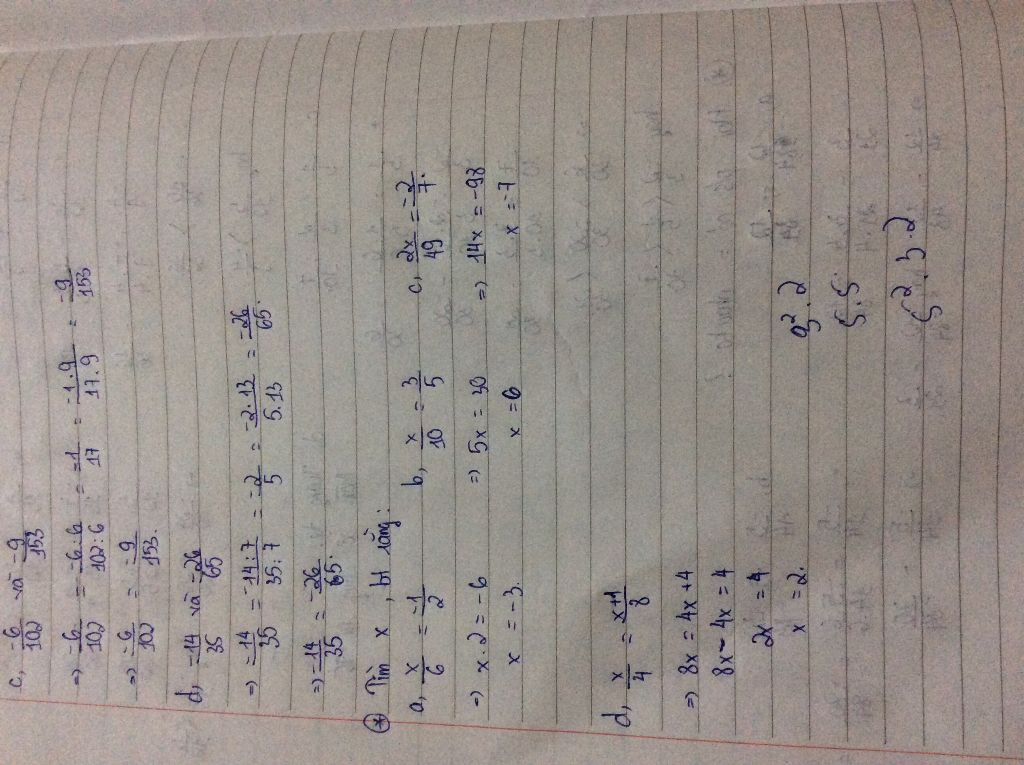 c, -6/102 và -9/153
=> -6/102 = -6:6/102:6 = -1/17 = -1.9/17.9 = -9/153
=> -6/102 = -9/153.
d, -14/35 và -26/65
=> -14/35 = -14:7/35:7 = -2/5 = -2.13/5.13 = -26/65.
=> -14/35 = -26/65.
* Tìm x, bt rằng:
a, x/6 = -1/2 b, x/10 = 3/5 c, 2x/49 = -2/7.
=> x.2 = -6 => 5x = 30 => 14x = -98
x = -3. x = 6 x = -7
d, x/4 = x+1/8
=> 8x = 4x + 4
8x - 4x = 4
2x = 4
x = 2.
3².2
5.5
5².3.2